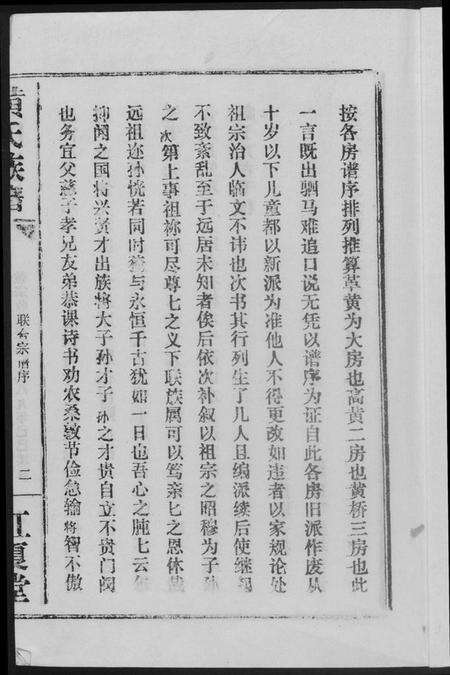 按各房谱序排列推算革黄为大房也高黄二房也黄桥三房也此
一言既出驷马难追口说无凭以谱序为证自此各房旧派作废从
十岁以下儿童都以新派为准他人不得更改如违者以家规论处
祖宗治人临文不讳也次书其行列生了几人且编派续后使继
不致紊乱至于远居未知者俟后依次补叙以祖宗之昭穆为子孙
之次第上事祖祢可尽尊七之义下联族属可以笃亲七之恩休
远祖迩孙恍若同时 与永恒千古犹如一日也吾心之肫七云
抑闻之国将兴 才出族将大子孙才子孙之才贵自立不贵门阀
也务宜父慈子孝兄友弟恭课诗书劝农桑敦节俭急输将智不傲
黄氏族谱
联合宗谱序
二
江夏堂